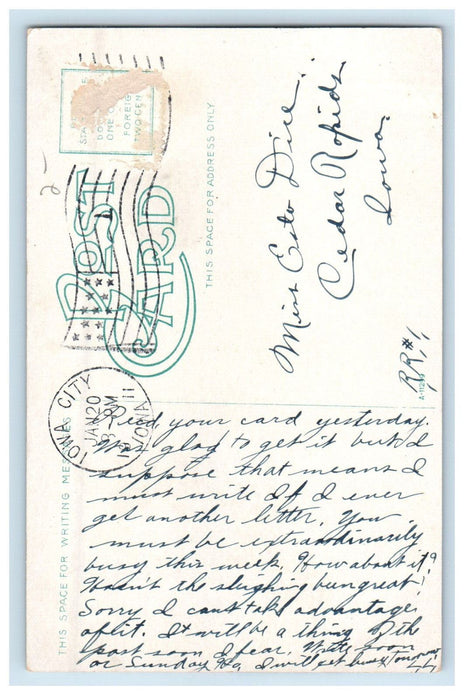 STA
DO
ONE C
FOREIG
TWO CEN
POST CARD
THIS SPACE FOR ADDRESS ONLY
Miss Esto Dice.
Cedar Rapids
Iowa.
RR#1
A-11219
IOWA CITY
JAN 20
PM
11
IOWA
THIS SPACE FOR WRITING MES ES
Rec'd your card yesterday.
Was glad to get it but I
suppose that means I
must write If I ever
get another letter. You
must be extraordinarily
busy this week. How about it?
Hasn't the sleighing bun great!
Sorry I can't take advantage
of it. It will be a thing of the
past soon I fear. Write soon
or Sunday I will get busy Tomorrow